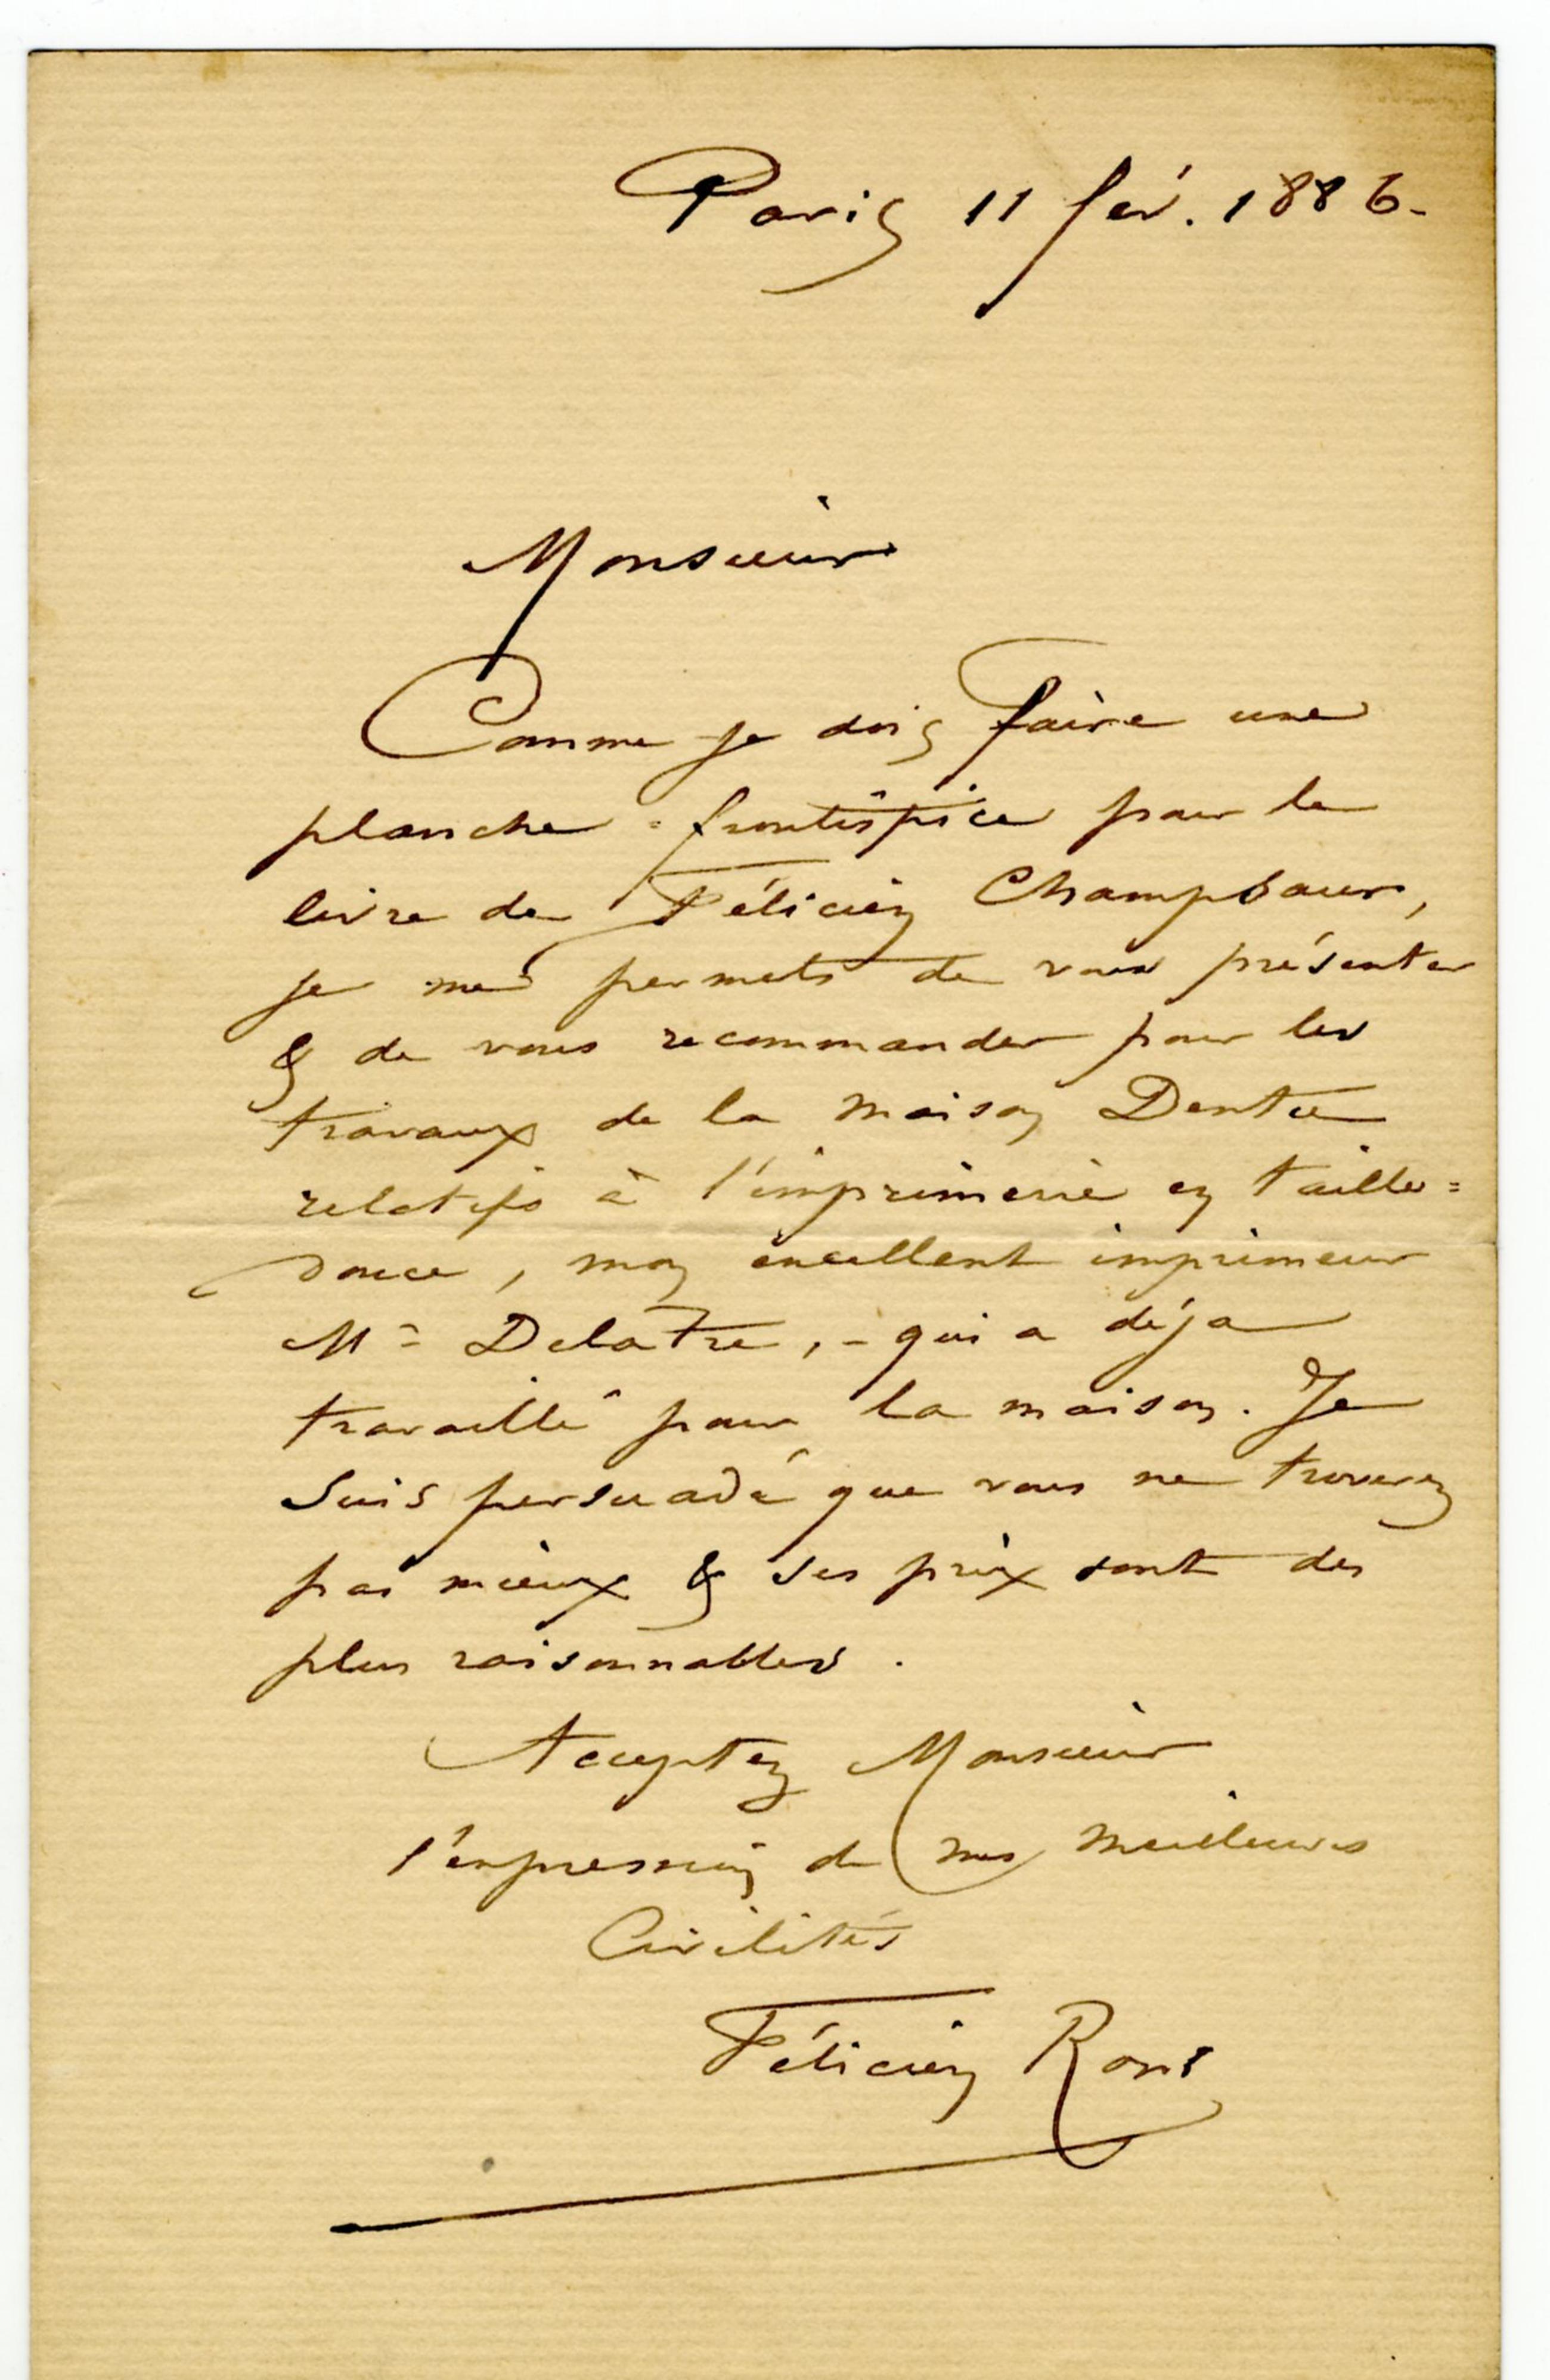 Paris 11 fév. 1886-
Monsieur
Comme je dois Faire une
planche = frontispice pour le
livre de Félicien Champsaur,
je me permets de vous présenter
& de vous recommander pour les
travaux de la Maison Dentu
relatifs à l'imprimerie en taille=
Douce, mon excellent imprimeur
Mr Delatre, - qui a déja
travaillé pour la maison. Je
Suis persuadé que vous ne trouverez
pas mieux & ses prix sont des
plus raisonnables.
Acceptez Monsieur
l'expression de mes Meilleures
Civilités
Félicien Rops